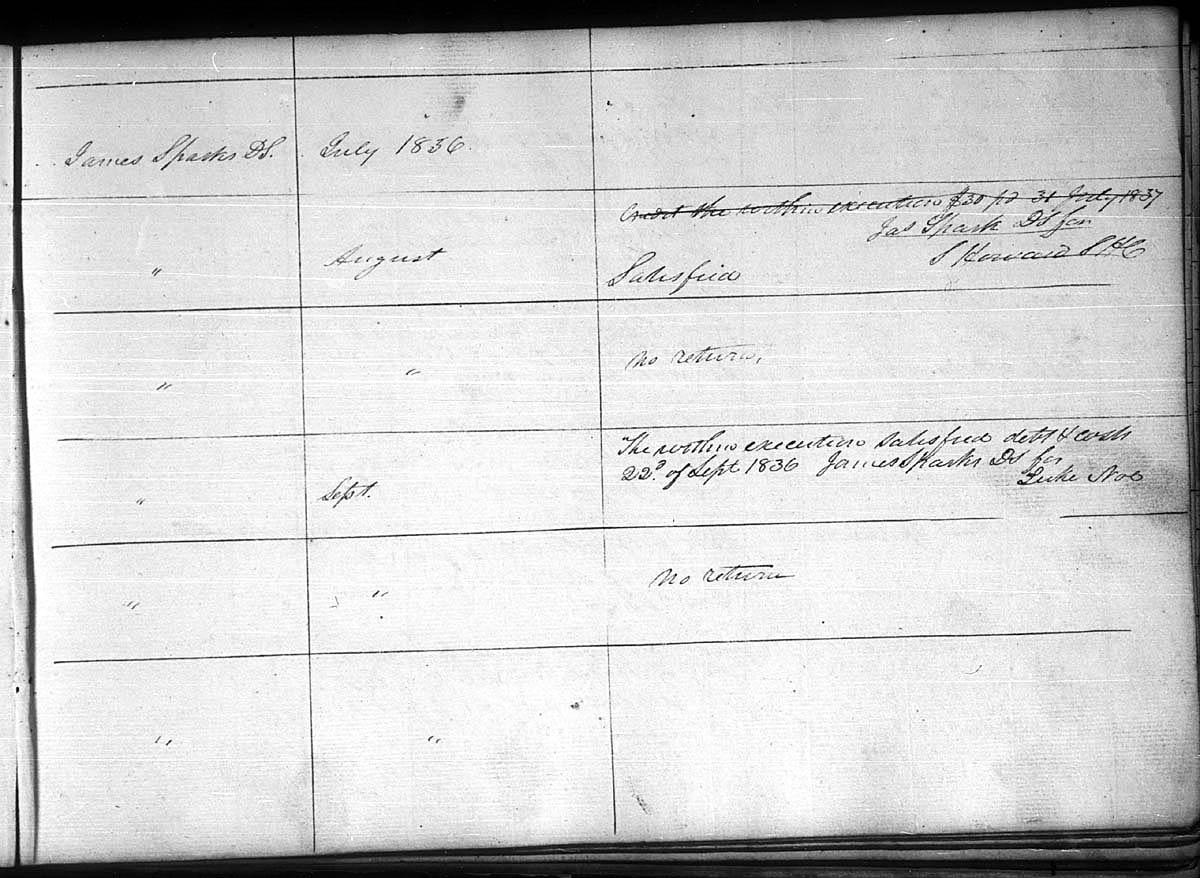 James Sparks DS. July 1836.
Credit the within execution $30 pd 31 July 1837
Jas Spark DS for
S Howard SHC
" August Satisfied
" " No return,
The within execution satisfied debt & cost
22d. of Sept 1836 James Sparks DS for
Luke Noe
" Sept.
" " No return
" "